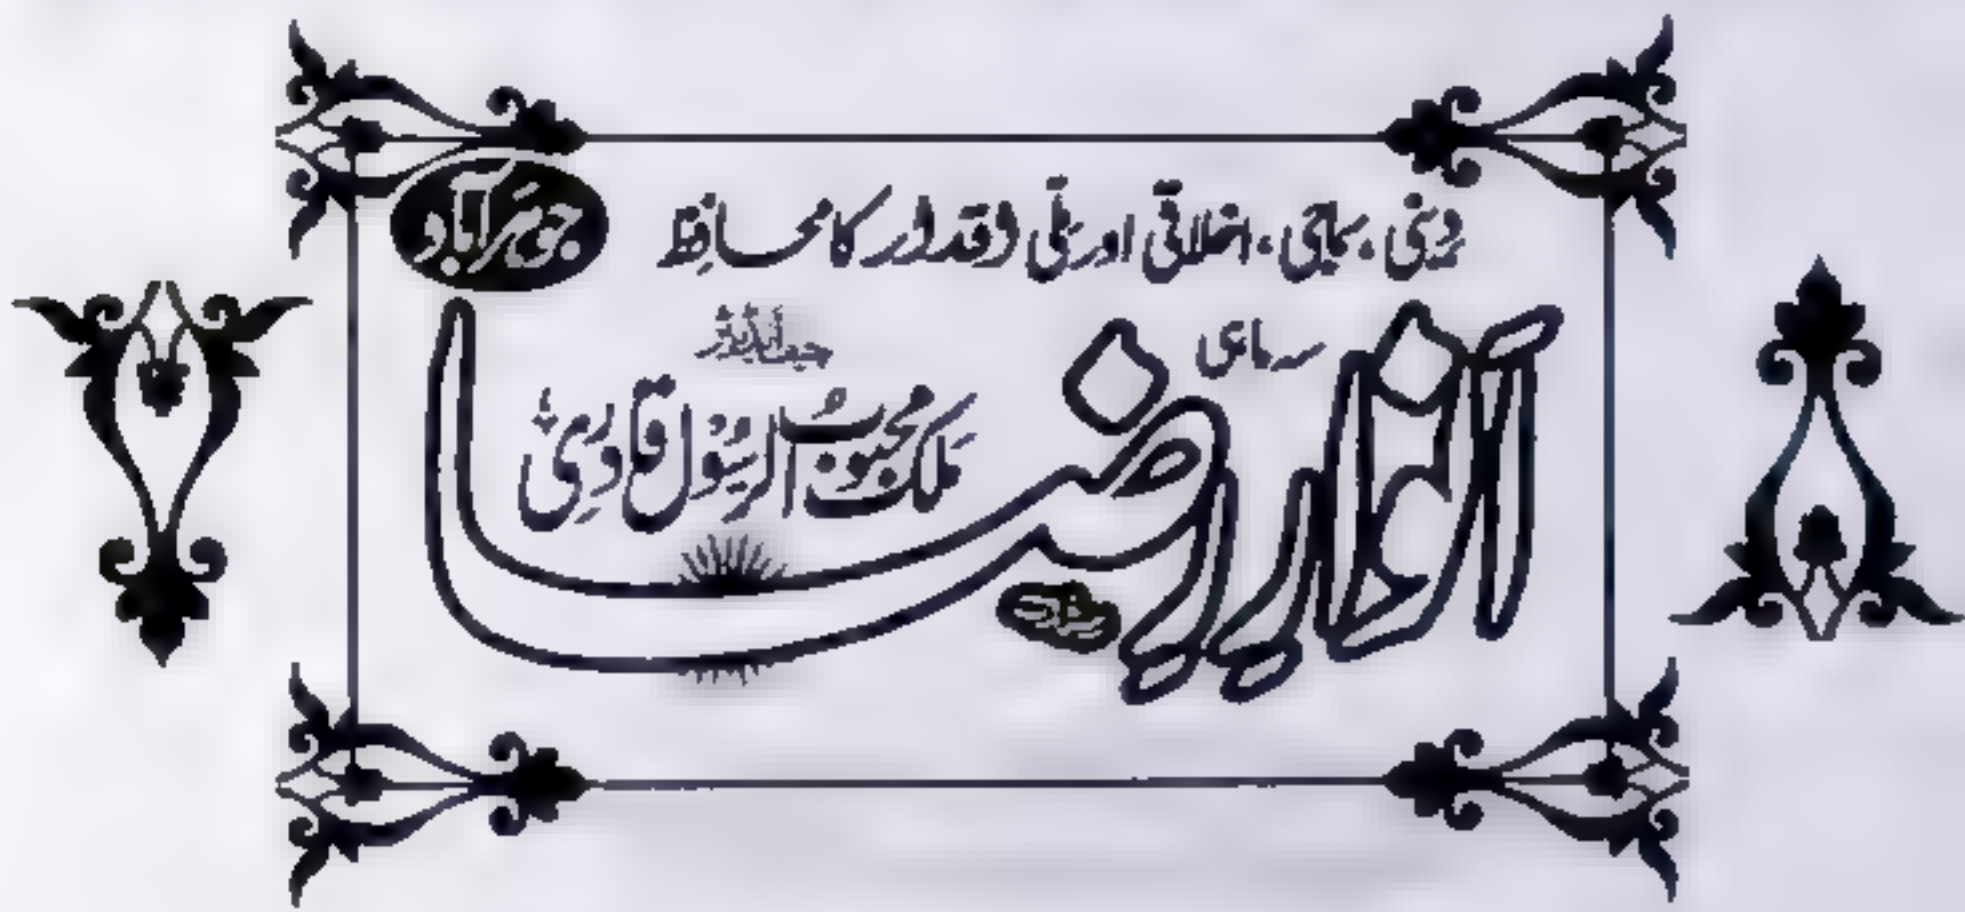 دینی، سماجی، اخلاقی اور ملّی اقدار کا محافظ
جوہر آباد
سہ ماہی
انوارِ رضا
چیف ایڈیٹر
ملک محبوبُ الرسُول قادری